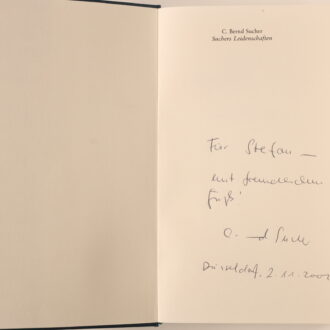 C. Bernd Sucher
Suchers Leidenschaften
Für Stefan —
mit freundlichem
Gruß!
C. Bernd Sucher
Düsseldorf, 2.11.2002